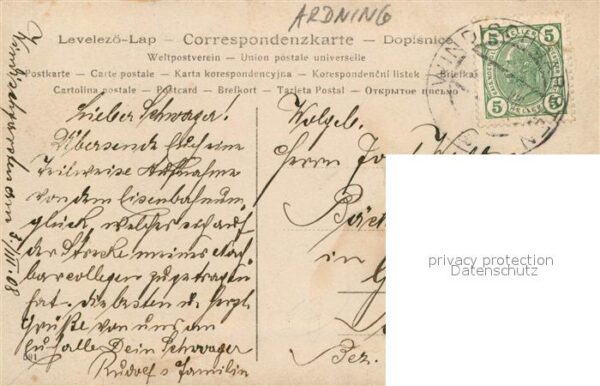 ARDNING
Levelező-Lap — Correspondenzkarte — Dopisnice
Weltpostverein — Union postale universelle
Postkarte — Carte postale — Karta korespondencyjna — Korespondenční lístek — Briefkaa
Cartolina postale — Postcard — Brefkort — Tarjeta Postal — Открытое письмо
5 5
5 5
WINDISC
Lieber Schwager!
Übersende Euch eine
Teilweise Aufnahme
von dem Eisenbahnun
glück, welches sich auf
der Strecke meines Nach
barcollegen zugetragen
hat. Die besten u. herzl.
Grüße von uns an
Euch alle. Dein Schwager
Rudolf s Familie
3./III. 08
Wolgeb.
Herrn
Bäck
in
G
Bez.
privacy protection
Datenschutz